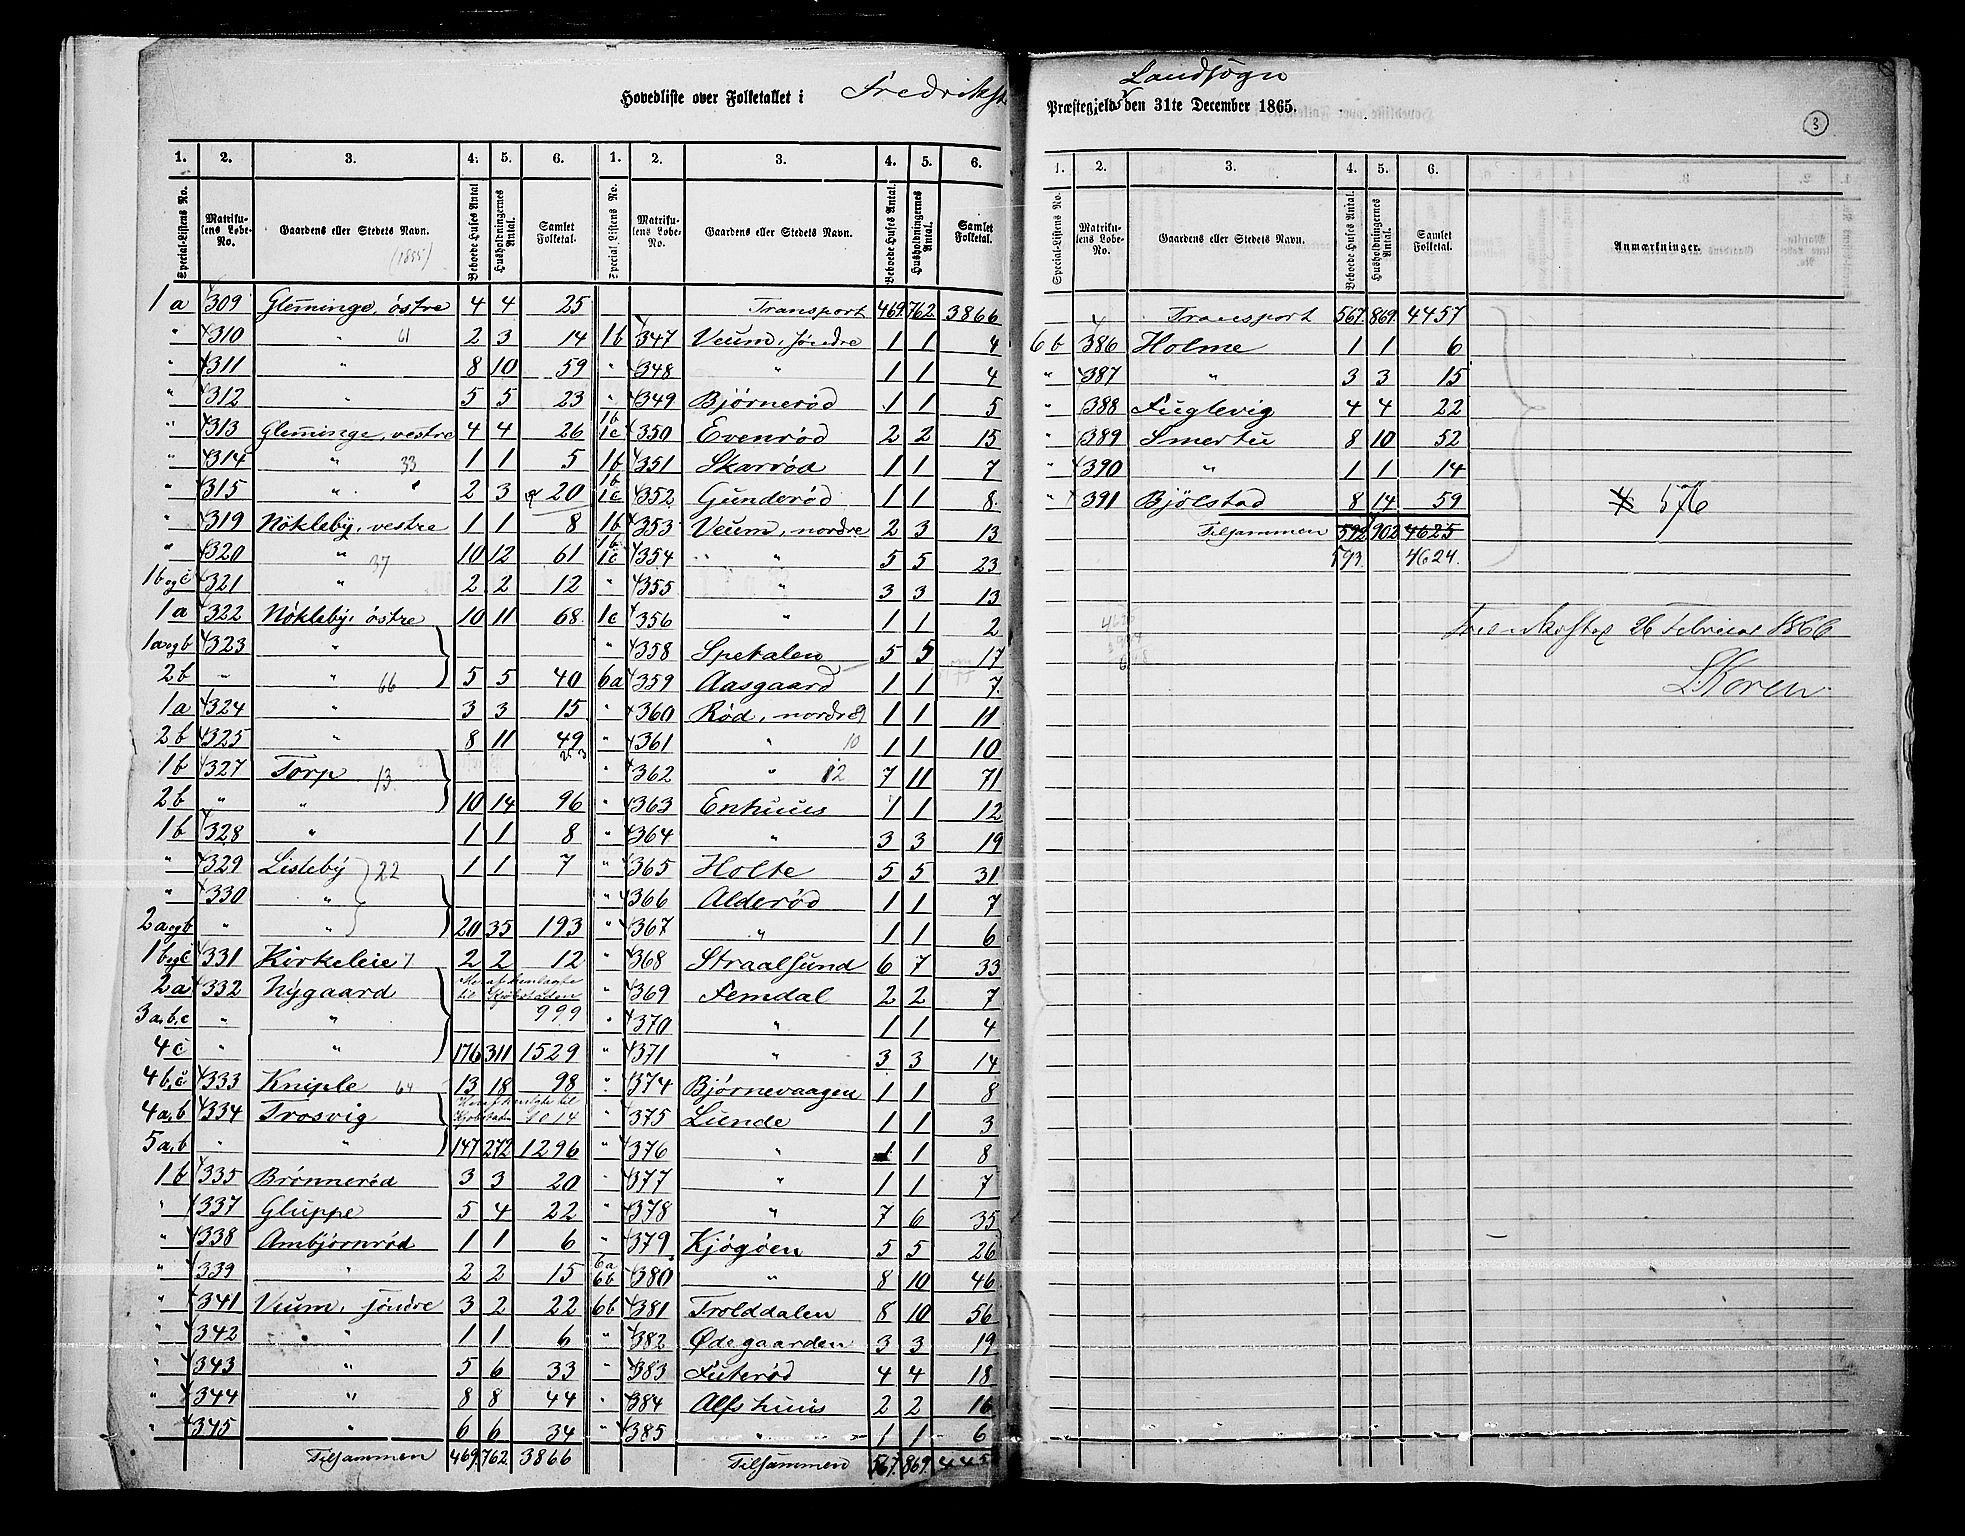 Hovedliste over Folketallet i Fredrikst
1. 2. 3. 4. 5. 6. 1. 2. 3. 4. 5. 6.
Special-Listens No. Matrikulens Løbe-No. Gaardens eller Stedets Navn. (1855) Beboede Huses Antal Husholdningernes Antal. Samlet Folketal. Special-Listens No. Matrikulens Løbe-No. Gaardens eller Stedets Navn. Beboede Huses Antal. Husholdningernes Antal. Samlet Folketal.
1 a 309 Gleminge, østre 4 4 25
" 310 " 61 2 3 14
" 311 " 8 10 59
" 312 " 5 5 23
" 313 Gleminge, vestre 4 4 26
" 314 " 33 1 1 5
" 315 " 2 3 20
" 319 Nökleby, vestre 1 1 8
" 320 " 37 10 12 61
1b og c 321 " 2 2 12
1a 322 Nökleby, østre 10 11 68
1a og b 323 "
2b " " 66 5 5 40
1a 324 " 3 3 15
2b 325 " 8 11 49
1b 327 Torp 13
2b " " 10 14 96
1b 328 " 1 1 8
" 329 Lisleby 22 1 1 7
" 330 "
2a og b " " 20 35 193
1b og c 331 Kirkeleie 7 2 2 12
2a 332 Nygaard Heraf henlagte til Kjøbstaden
3a, b, c " " 999
4c " " 176 311 1529
4b, c 333 Kniple 64 13 18 98
4a, b 334 Trosvig Heraf henlagte til Kjøbstaden 1014
5a, b " " 147 272 1296
1b 335 Brønnerød 3 3 20
" 337 Gluppe 5 4 22
" 338 Ambjørnrød 1 1 6
" 339 " 2 2 15
" 341 Veum, söndre 3 2 22
" 342 " 1 1 6
" 343 " 5 6 33
" 344 " 8 8 44
" 345 " 6 6 34
Tilsammen 469 762 3866
Transport 469 762 3866
1b 347 Veum, söndre 1 1 4
" 348 " 1 1 4
" 349 Bjørnerød 1 1 5
1b 1c 350 Evenrød 2 2 15
1b 351 Skarrød 1 1 7
1b 1c 352 Gunderød 1 1 8
1b 353 Veum, nordre 2 3 13
1b 1c 354 " " 5 5 23
" 355 " 3 3 13
1c 356 " 1 1 2
" 358 Spetalen 5 5 17
6a 359 Aasgaard 1 1 7
" 360 Rød, nordre 1 1 11
" 361 " 10 1 1 10
" 362 " 12 7 11 71
" 363 Enhuus 1 1 12
" 364 " 3 3 19
" 365 Holte 5 5 31
" 366 Alderød 1 1 7
" 367 " 1 1 6
" 368 Straalsund 6 7 33
" 369 Femdal 2 2 7
" 370 " 1 1 4
" 371 " 3 3 14
" 374 Bjørnevaagen 1 1 8
" 375 Lunde 1 1 3
" 376 " 1 1 8
" 377 " 1 1 7
" 378 " 7 6 35
" 379 Kjøgøen 5 5 26
6a 6b 380 " 8 10 46
6b 381 Trolddalen 8 10 56
" 382 Ødegaarden 3 3 19
" 383 Futerød 4 4 18
" 384 Alfshuus 2 2 16
" 385 " 1 1 6
Tilsammen 567 869 445
Landsogn
Præstegjeld den 31te December 1865.
3
1. 2. 3. 4. 5. 6.
Special-Listens No. Matrikulens Løbe-No. Gaardens eller Stedets Navn. Beboede Huses Antal. Husholdningernes Antal. Samlet Folketal. Anmærkninger.
Transport 567 869 4457
6b 386 Holme 1 1 6
" 387 " 3 3 15
" 388 Fuglevig 4 4 22
" 389 Smertu 8 10 52
" 390 " 1 1 14
" 391 Bjölstad 8 14 59
576
Tilsammen 592 902 4625
593 4624
26 Februar 1866
S. Koren